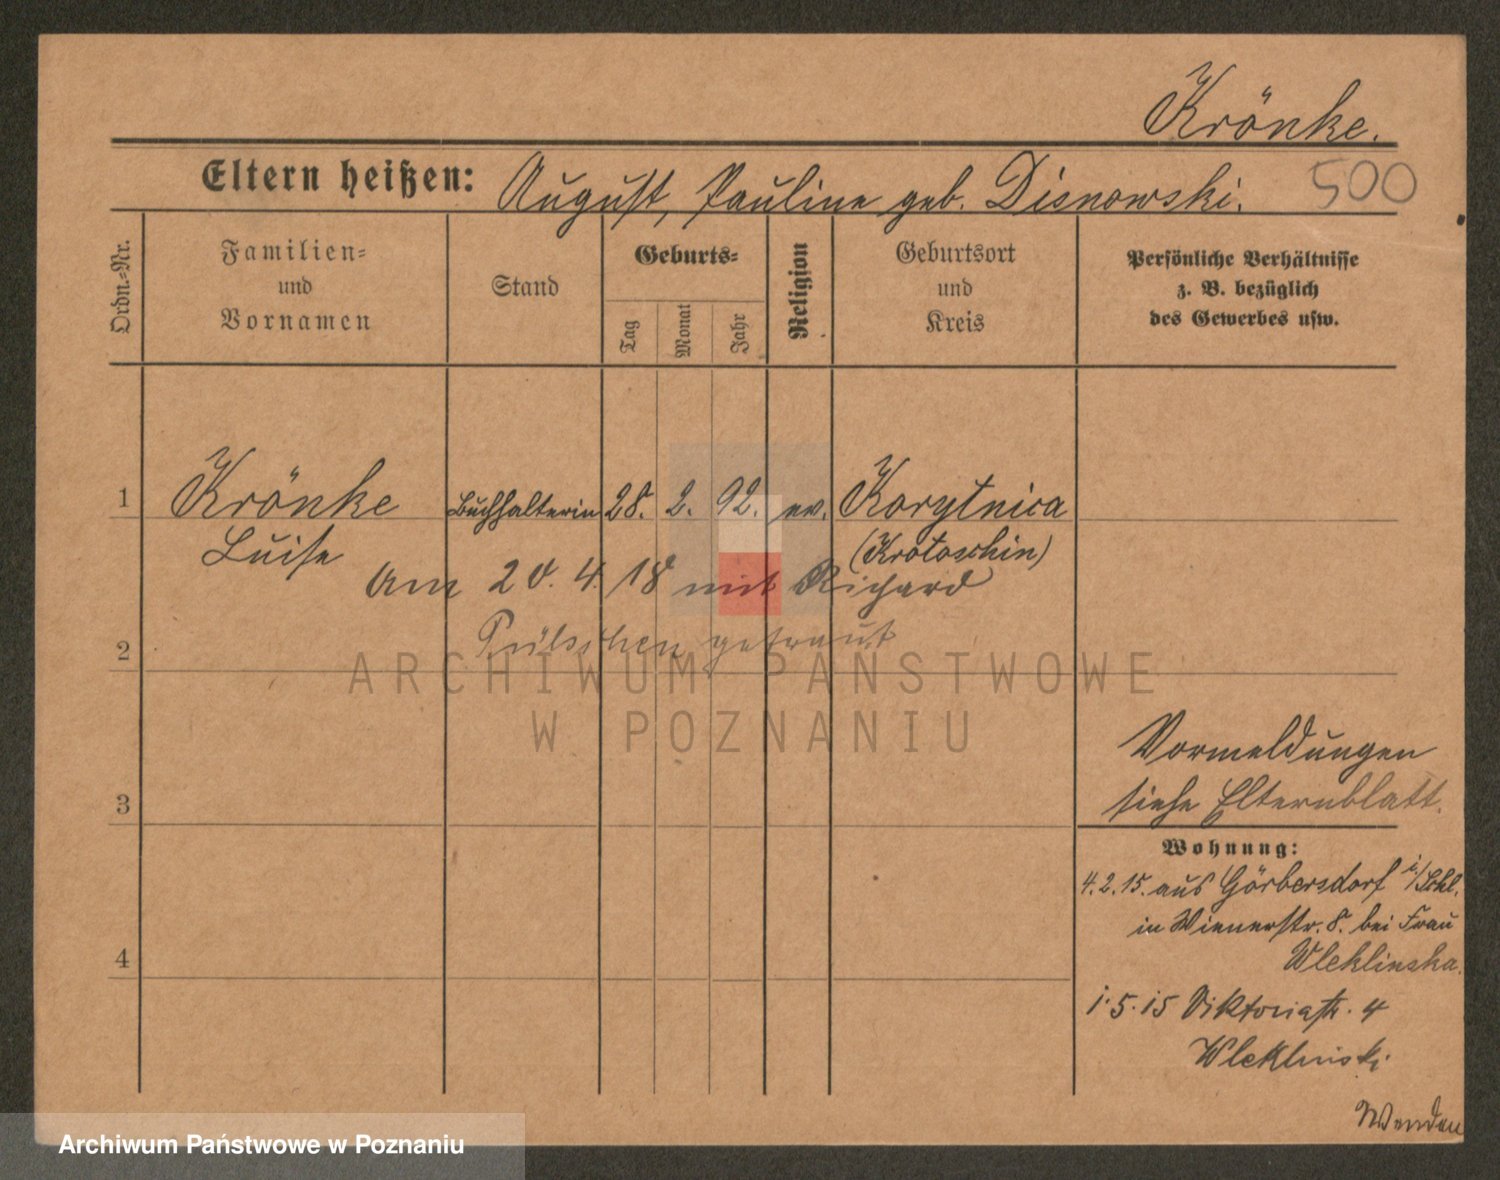 Krönke.
Eltern heißen: August, Pauline geb. Disnowski. 500
Ordn.=Nr.
Familien=
und
Vornamen
Stand
Geburts=
Tag
Monat
Jahr
Religion
Geburtsort
und
Kreis
Persönliche Verhältnisse
z. B. bezüglich
des Gewerbes usw.
1 Krönke Buchhalterin 28. 2. 92. ev. Korytnica
Luise (Krotoschin)
Am 20. 4. 18 mit Richard
getraut
2
ARCHIWUM PAŃSTWOWE
W POZNANIU
Vormeldungen
siehe Elternblatt.
3
Wohnung:
4.2.15. aus Görbersdorf i/Schl.
in Wienerstr. 8. bei Frau
Wleklinska.
4
1.5.15 Viktoriastr. 4
Wleklinski
Archiwum Państwowe w Poznaniu